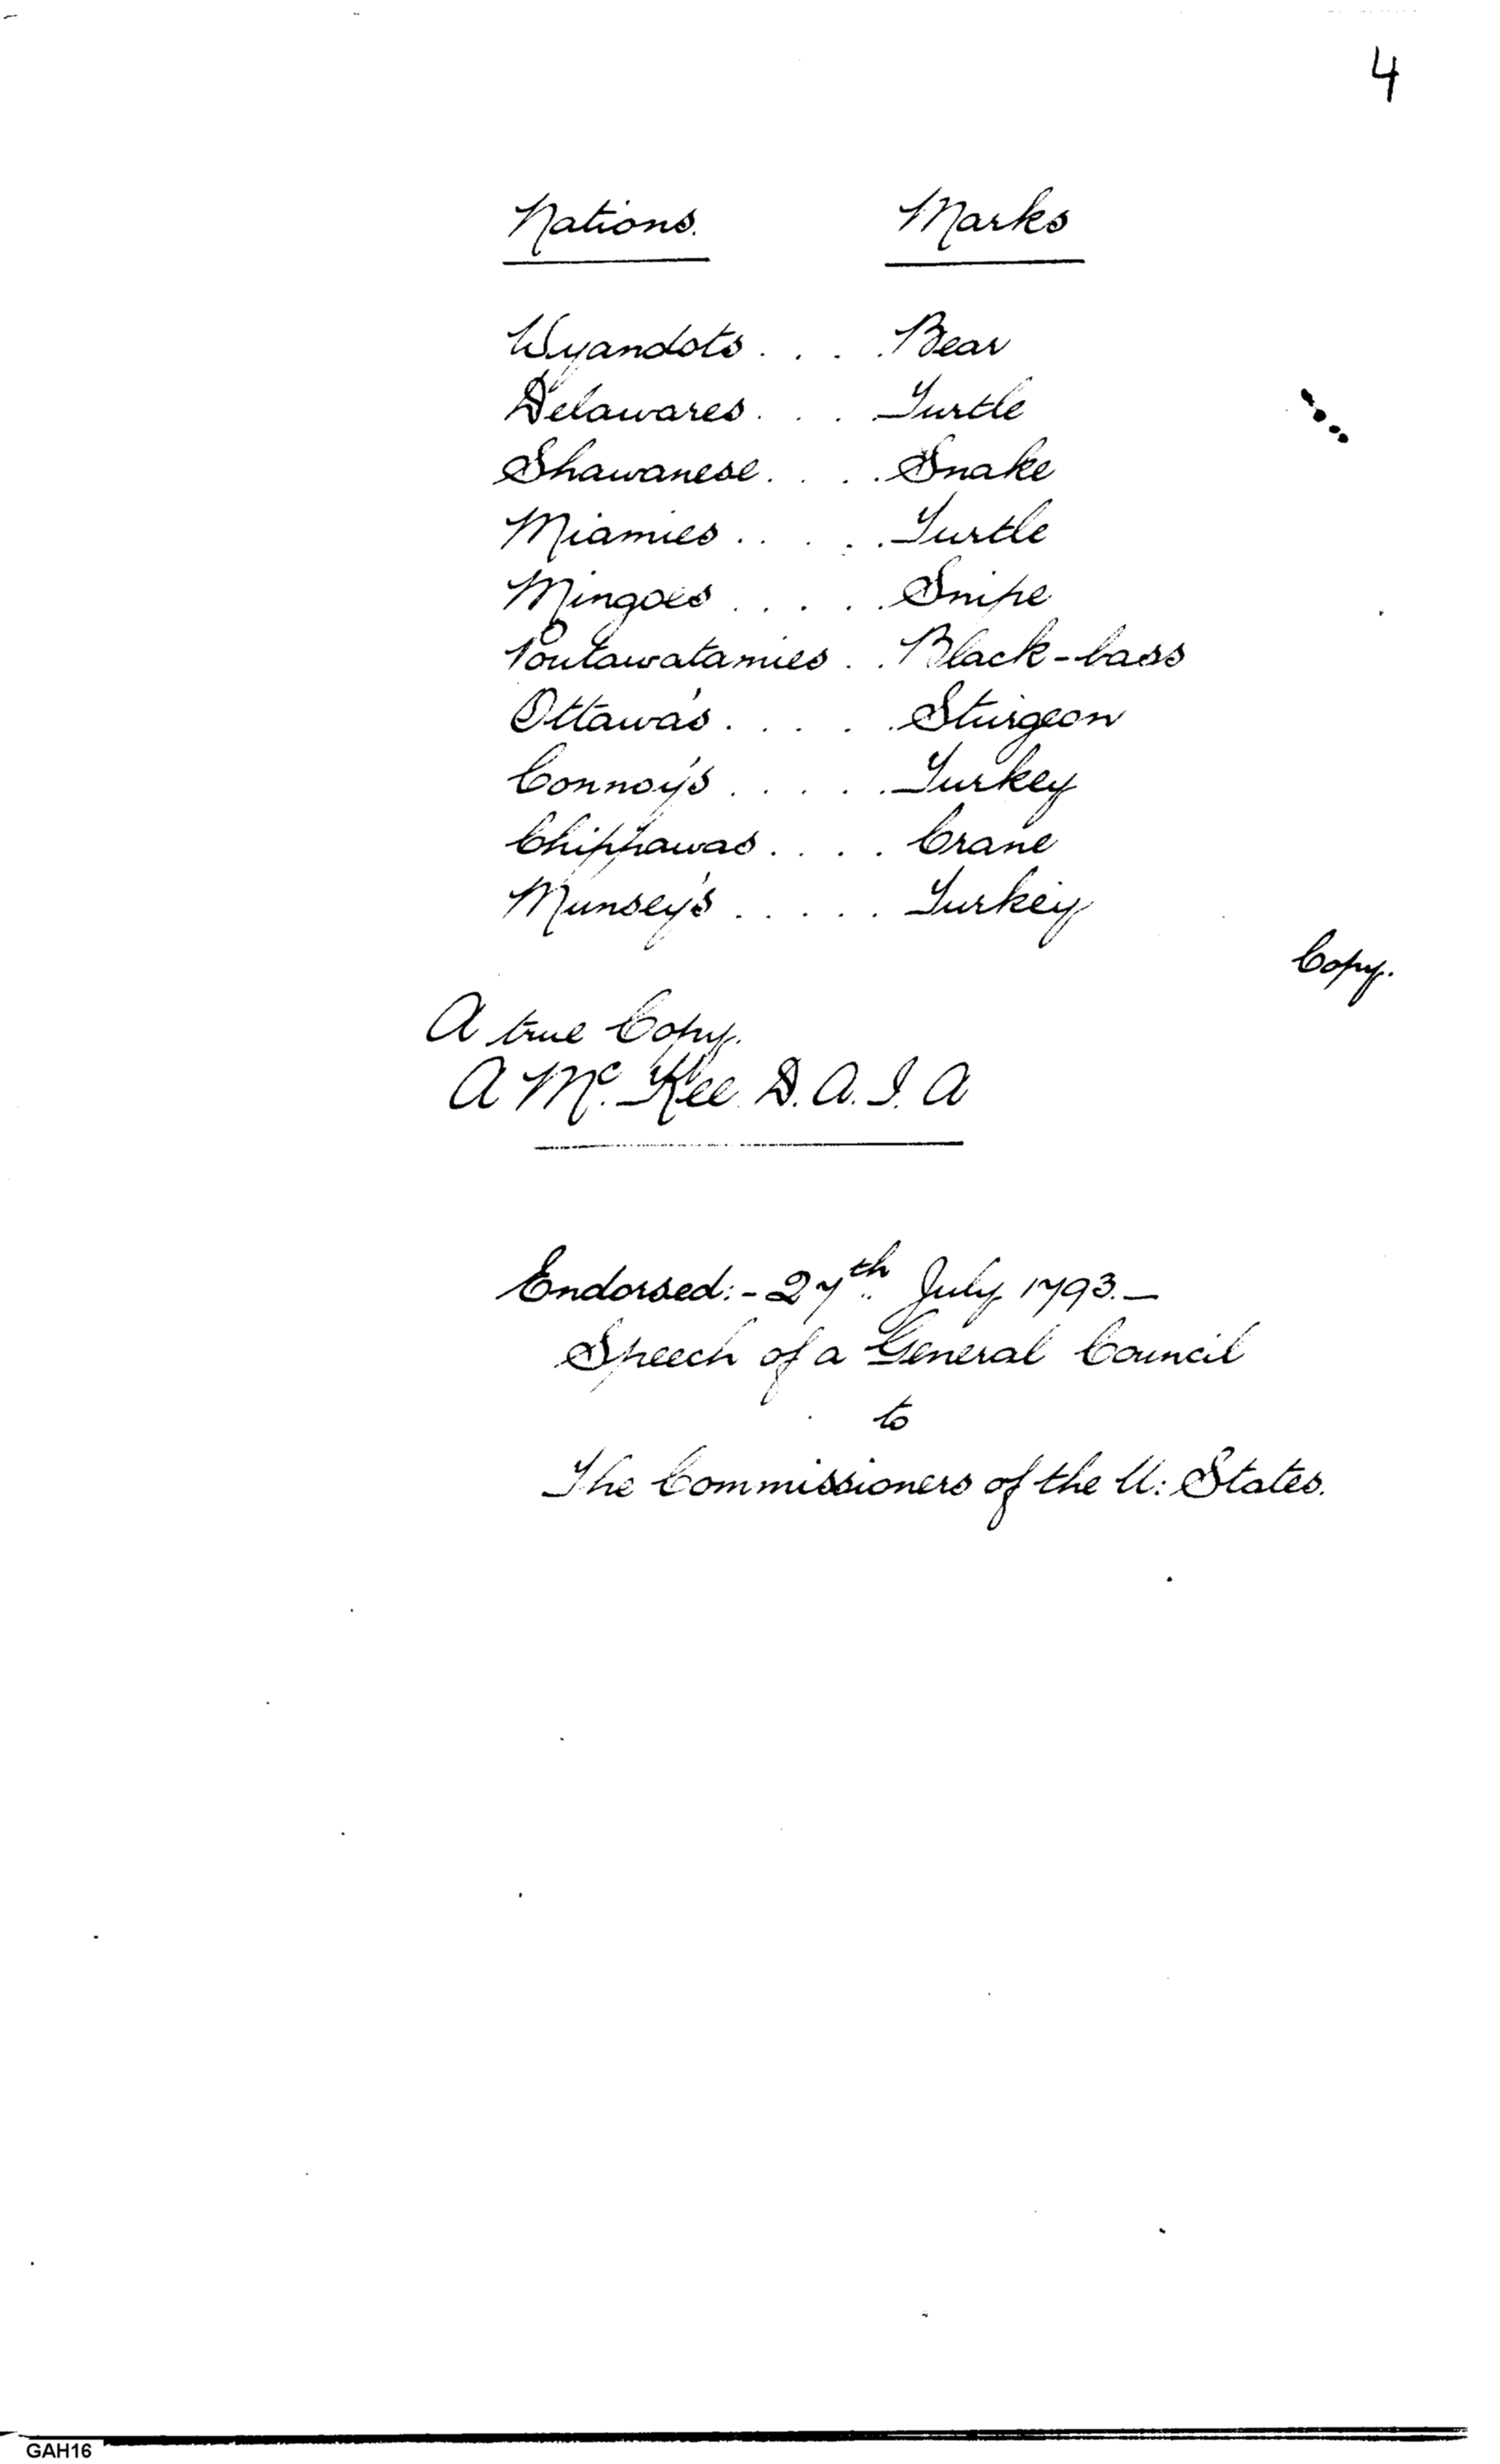 4
Nations. Marks
Wyandots . . . . Bear
Delawares . . . Turtle
Shawanese . . . . Snake
Miamies . . . . . Turtle
Mingoes . . . . . Snipe
Poutawatamies . . Black-bass
Ottawa's . . . . . Sturgeon
Connoy's . . . . . Turkey
Chippawas . . . . Crane
Munsey's . . . . . Turkey
Copy.
A true Copy.
A Mc. Kee. D. A. I. A
Endorsed:- 27th July 1793.—
Speech of a General Council
to
The Commissioners of the U: States.
GAH16